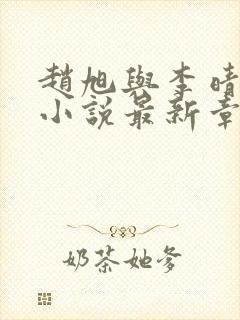 趙旭與李晴
小說最新章
奶茶她爹